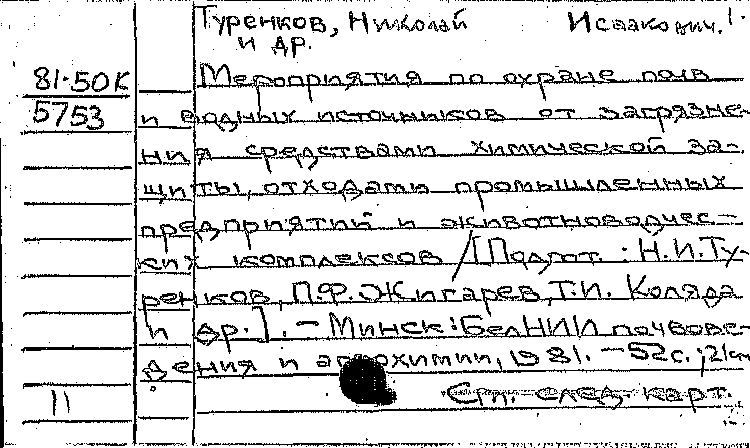 Туренков, Николай Исаакович.
и др.
81-50К
5753
Мероприятия по охране почв
и водных источников от загрязне-
ния средствами химической за-
щиты, отходами промышленных
предприятий и животноводчес-
ких комплексов / [Подгот.: Н.И.Ту-
ренков, П.Ф.Жигарев, Т.И. Коляда
и др.]. – Минск: БелНИИ почвове-
дения и агрохимии, 1981. – 52с.; 21см
См. след. карт.
11